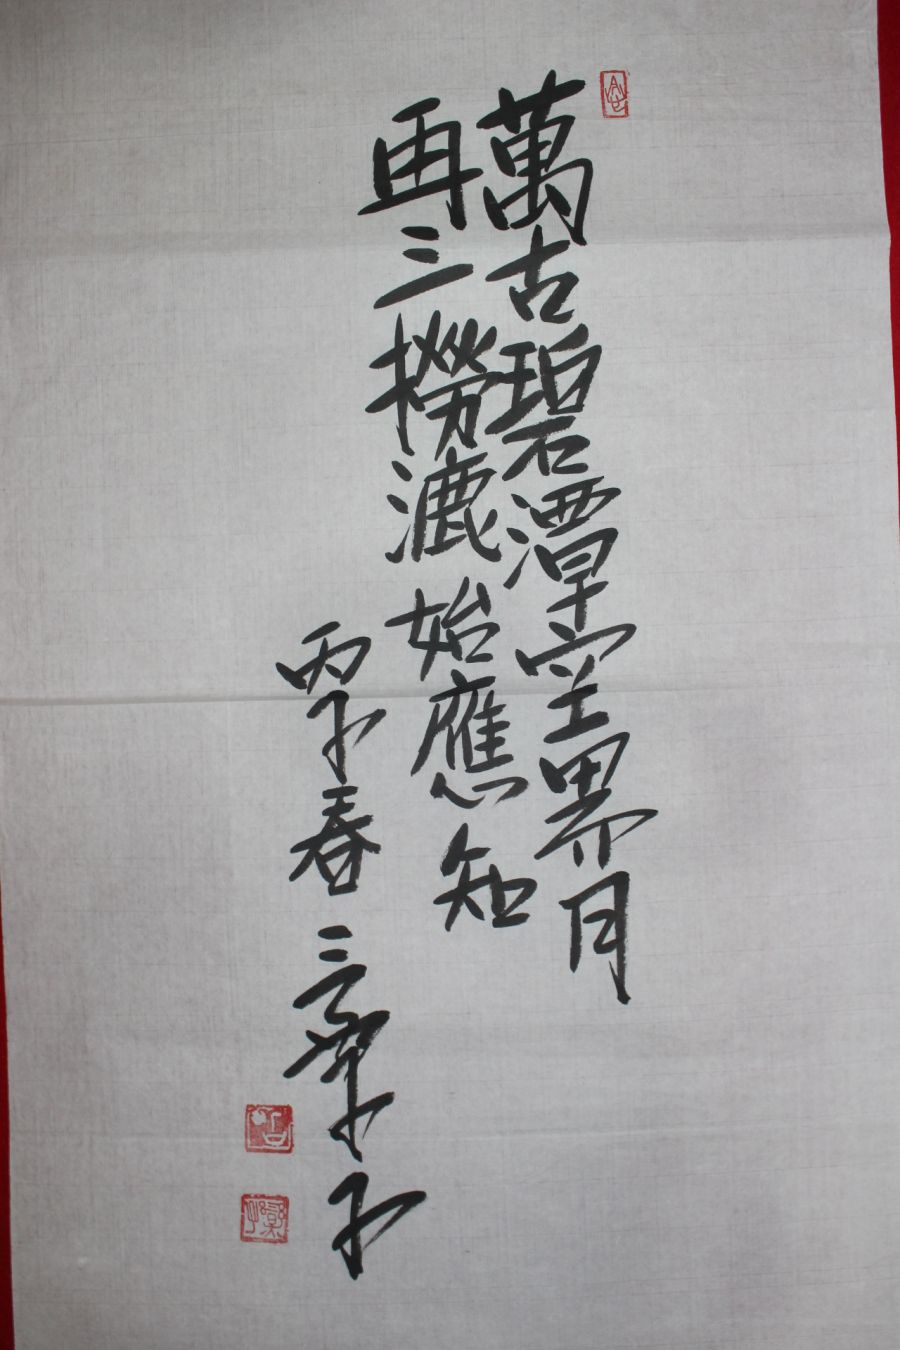 萬古碧潭空界月
再三撈漉始應知
丙子春 三
子